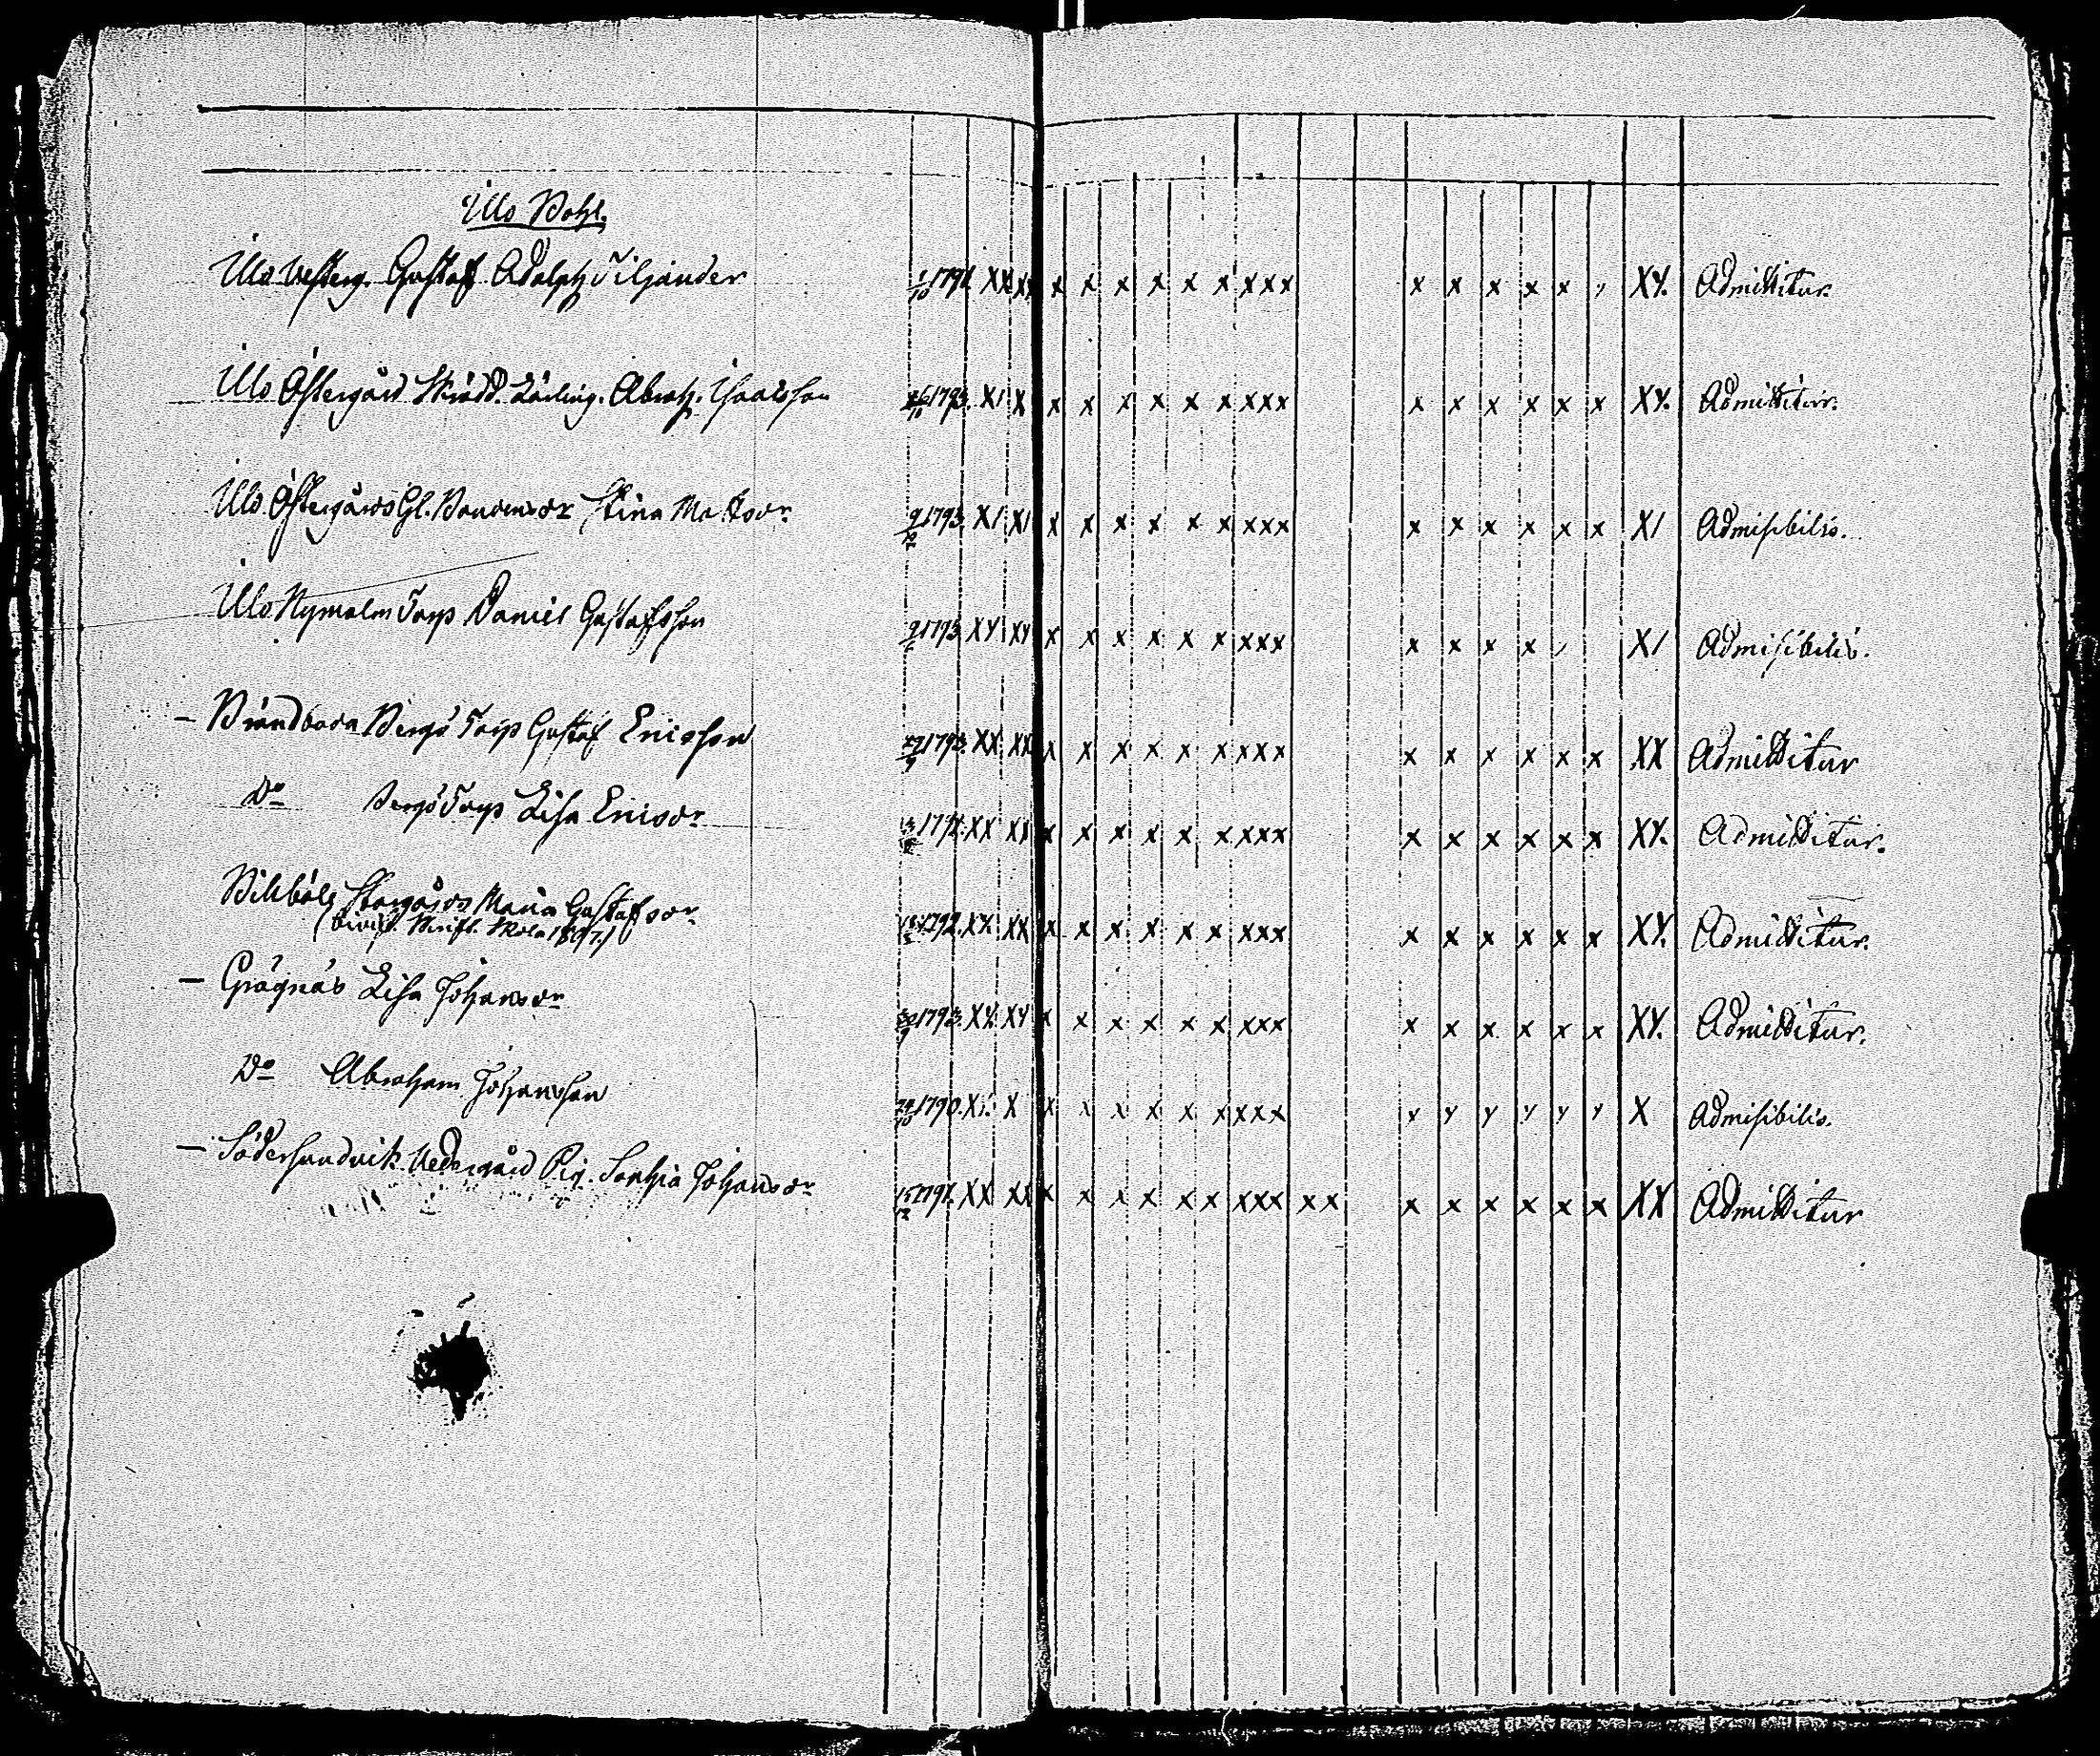 Ulo Bohl.
Ulo Westerg. Gustaf Adolph Tiljander 1791. XX XX x x x x x x xxx x x x x x XX. Admittitur.
Ulo Östergård Skrädd. Lärling. Abrah. Isaaksson 1793. XI X x x x x x x xxx x x x x x x XX. Admittitur.
Ulo Östergårds Gl. Bondens dr Stina Matsdr 9/12 1793. XI XI x x x x x x xxx x x x x x x XI Admissibilis.
Ulo Nymalm Torp Daniel Gustafsson 1793. XX XX x x x x x x xxx x x x x XI Admissibilis.
– Brändboda Bergs Torp Gustaf Ericsson 27/9 1793. XX XX x x x x x x xxx x x x x x x XX Admittitur
Do Bergs Torp Lisa Ericsdr XX XX x x x x x x xxx x x x x x x XX. Admittitur.
Billböle Storgårds Maria Gustafsdr 1792. XX XX x x x x x x xxx x x x x x x XX. Admittitur.
( Skrifl. Skola 1807.)
– Grägnäs Lisa Johansdr 30/9 1793. XX XX x x x x x x xxx x x x x x x XX. Admittitur.
Do Abraham Johansson 1790. XI. X x x x x x x xxx x x x x x x X Admissibilis.
– Södersundvik Nedergård Pig. Sophia Johansdr XX XX x x x x x x xxx xx x x x x x x XX Admittitur